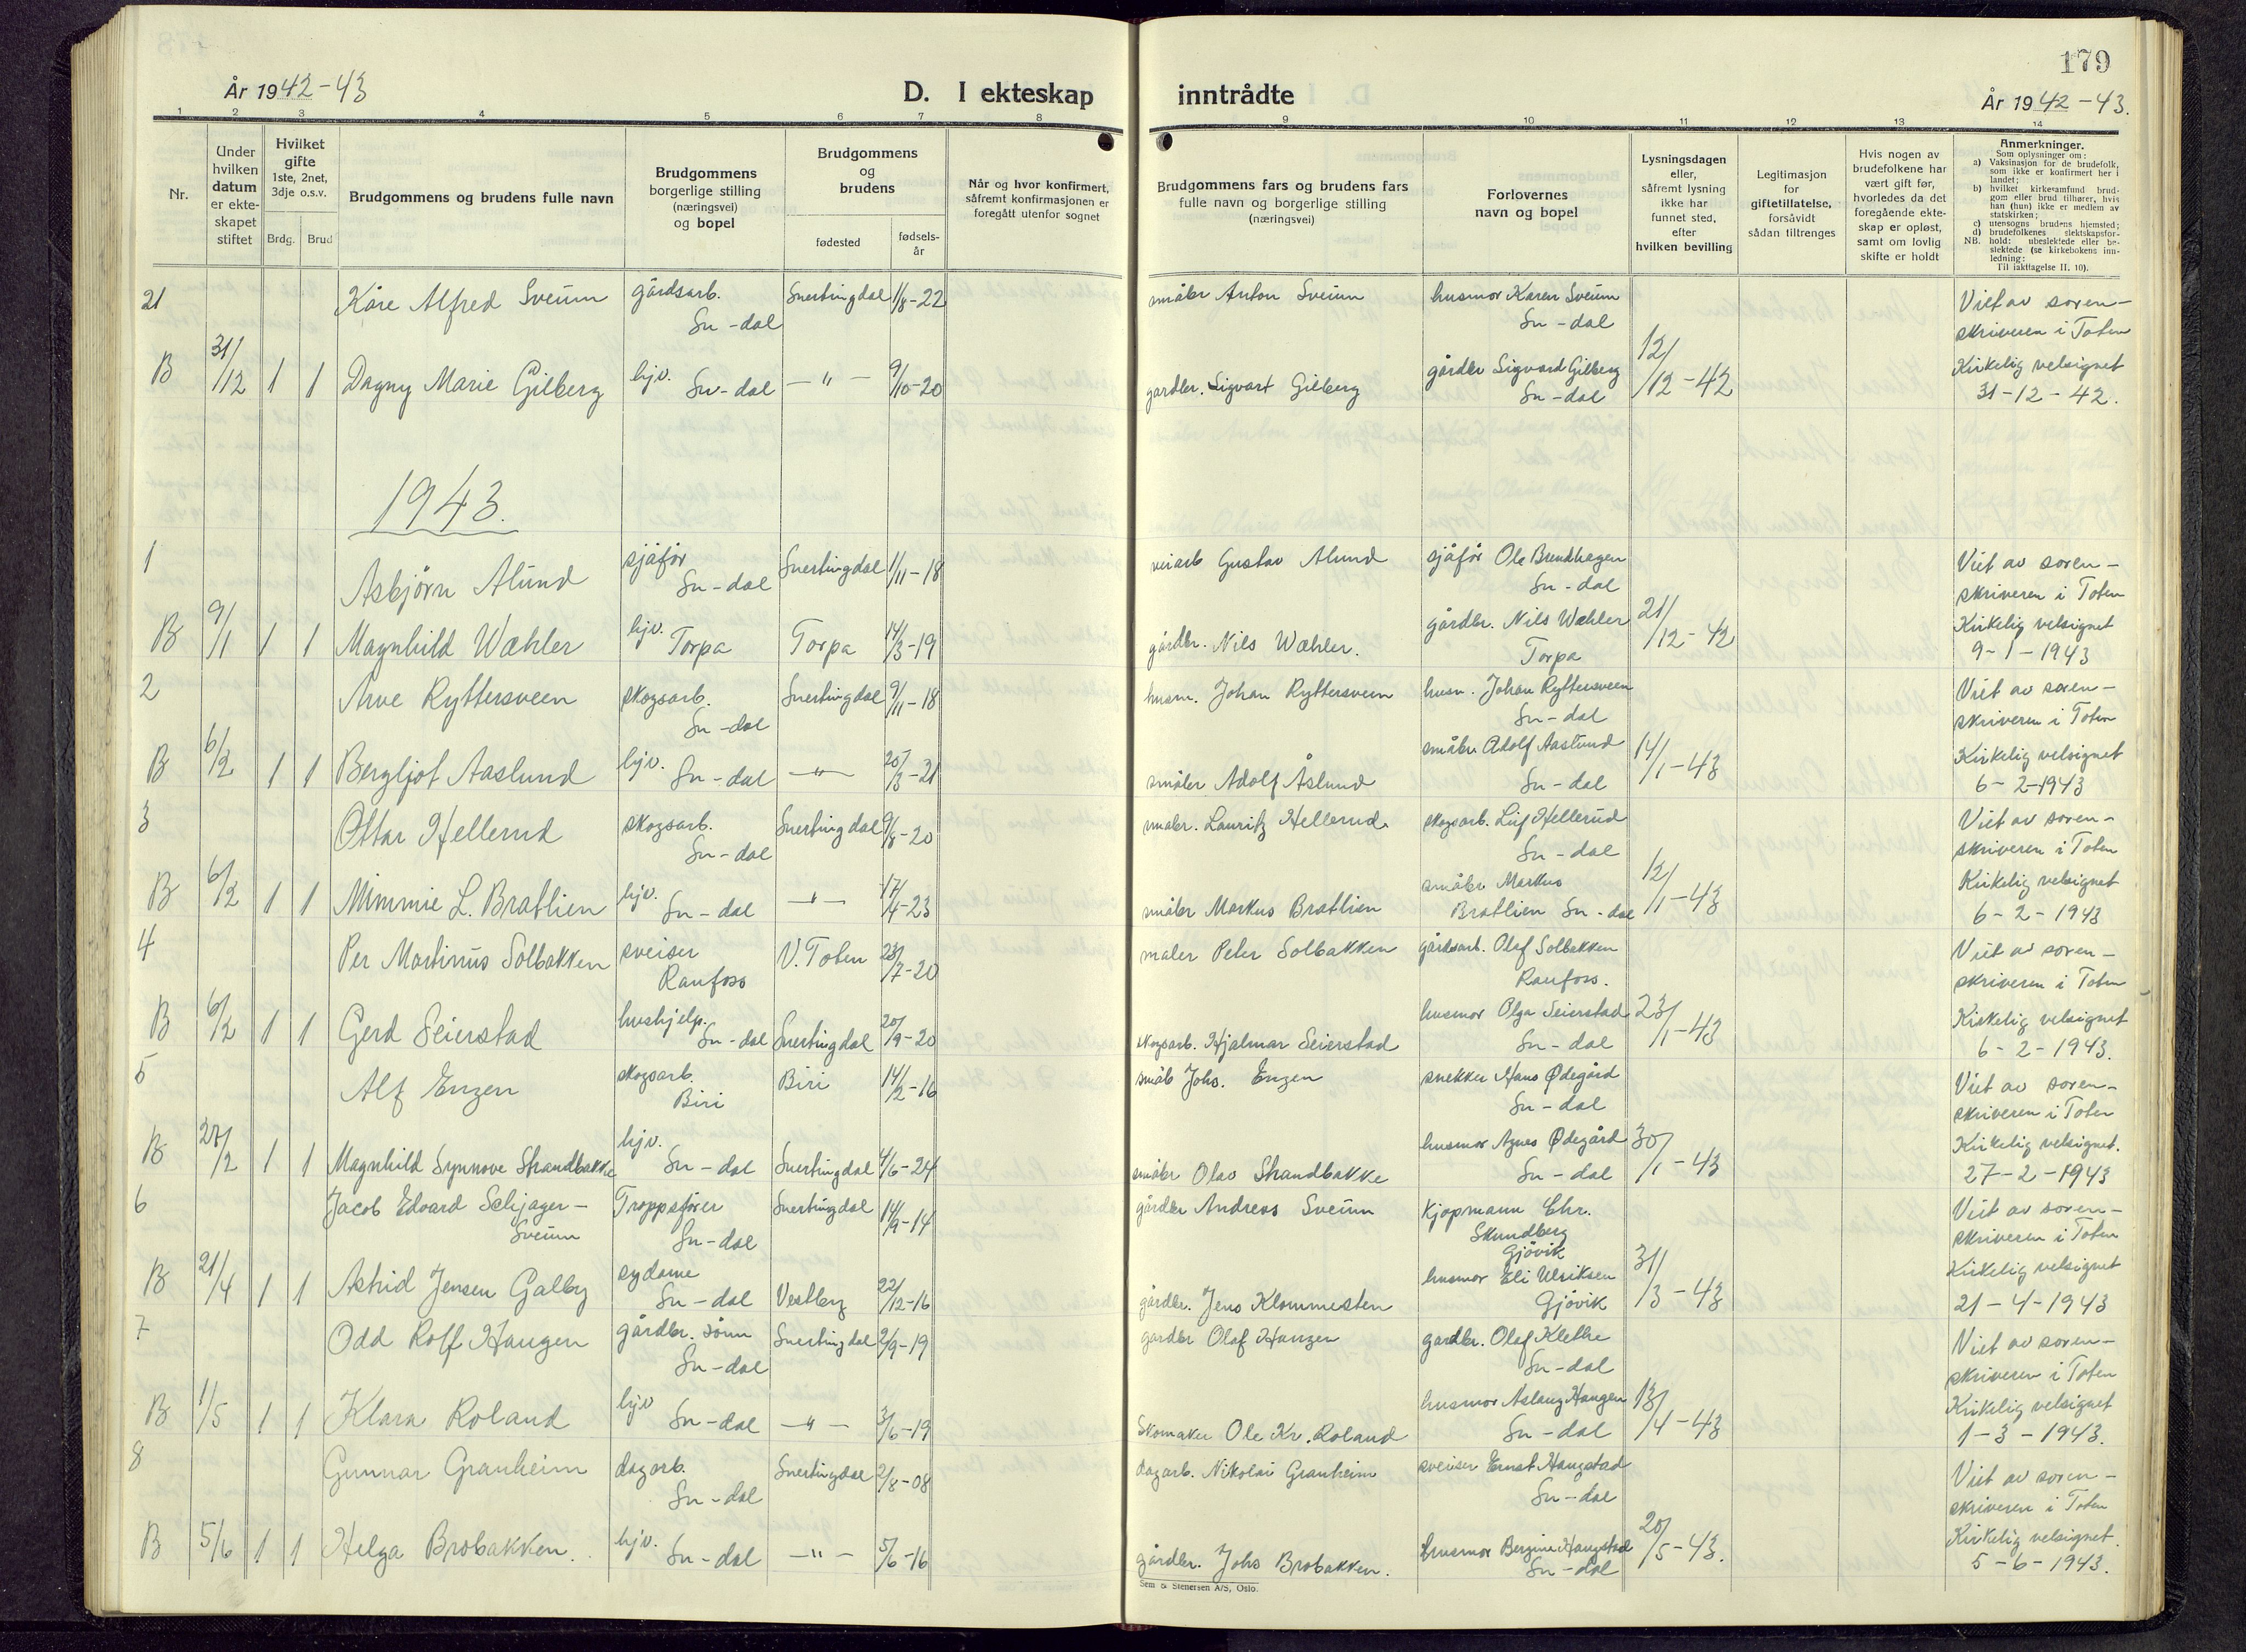 179
År 1942-43
D. I ekteskap inntrådte
År 1942-43.
1 2 3 4 5 6 7 8 9 10 11 12 13 14
Nr.
Under hvilken datum er ekte-skapet stiftet
Hvilket gifte 1ste, 2net, 3dje o.s.v.
Brdg. Brud
Brudgommens og brudens fulle navn
Brudgommens borgerlige stilling (næringsvei) og bopel
Brudgommens og brudens
fødested
fødsels-år
Når og hvor konfirmert, såfremt konfirmasjonen er foregått utenfor sognet
Brudgommens fars og brudens fars fulle navn og borgerlige stilling (næringsvei)
Forlovernes navn og bopel
Lysningsdagen eller, såfremt lysning ikke har funnet sted, efter hvilken bevilling
Legitimasjon for giftetillatelse, forsåvidt sådan tiltrenges
Hvis nogen av brudefolkene har vært gift før, hvorledes da det foregående ekte-skap er opløst, samt om lovlig skifte er holdt
Anmerkninger.
Som oplysninger om:
a) Vaksinasjon for de brudefolk, som ikke er konfirmert her i landet;
b) hvilket kirkesamfund brud-gom eller brud tilhører, hvis han (hun) ikke er medlem av statskirken;
c) utensogns brudens hjemsted;
d) brudefolkenes slektskapsfor-
NB. hold: ubeslektede eller be-slektede (se kirkebokens inn-ledning:
Til iakttagelse II. 10).
21 Kåre Alfred Sveum gårdsarb. Sn-dal Snertingdal 1/8-22 småbr Anton Sveum husmor Karen Sveum Sn-dal Viet av soren-
skriveren i Toten
B 31/12 1 1 Dagny Marie Gilberg hjv. Sn-dal -"- 9/10-20 gardbr. Sigvart Gilberg gårdbr Sigvard Gilberg Sn-dal 12/12-42 Kirkelig velsignet
31-12-42.
1943.
1 Asbjörn Alund sjåför Sn-dal Snertingdal 1/11-18 veiarb Gustav Alund sjåför Ole Brendhagen Sn-dal Viet av soren-
skriveren i Toten
B 9/1 1 1 Magnhild Wæhler hjv. Torpa Torpa 14/3-19 gårdbr. Nils Wæhler. gårdbr. Nils Wæhler Torpa 21/12-42 Kirkelig velsignet
9-1-1943
2 Arve Ryttersveen skogsarb. Sn-dal Snertingdal 9/11-18 husm. Johan Ryttersveen husm. Johan Ryttersveen Sn-dal Viet av soren-
skriveren i Toten
B 6/2 1 1 Bergljot Aaslund hjv. Sn-dal -"- 20/3-21 småbr Adolf Åslund småbr Adolf Aaslund Sn-dal 14/1-43 Kirkelig velsignet
6-2-1943
3 Ottar Hellerud skogsarb. Sn-dal Snertingdal 9/8-20 småbr. Lauritz Hellerud. skogsarb. Leif Hellerud Sn-dal Viet av soren-
skriveren i Toten
B 6/2 1 1 Mimmie L. Bratlien hjv. Sn-dal -"- 17/4-23 småbr Markus Bratlien småbr Markus Bratlien Sn-dal 12/1-43 Kirkelig velsignet
6-2-1943
4 Per Martinus Solbakken sveiser Raufoss V. Toten 23/7-20 maler Peter Solbakken gårdsarb. Olaf Solbakken Raufoss. Viet av soren-
skriveren i Toten
B 6/2 1 1 Gerd Seierstad hushjelp. Sn-dal Snertingdal 20/9-20 skogsarb. Hjalmar Seierstad husmor Olga Seierstad Sn-dal 23/1-43 Kirkelig velsignet
6-2-1943.
5 Alf Engen skogsarb. Biri Biri 14/2-16 småb Johs. Engen snekker Hans Ødegård Sn-dal Viet av soren-
skriveren i Toten
B 27/2 1 1 Magnhild Synnove Strandbakke hjv. Sn-dal Snertingdal 4/6-24 småbr Olav Strandbakke husmor Agnes Ødegård Sn-dal 30/1-43 Kirkelig velsignet.
27-2-1943
6 Jacob Edvard Schjager-Sveum Troppsfører Sn-dal Snertingdal 14/9-14 gårdbr Andreas Sveum Kjøpmann Chr. Skundberg Gjövik Viet av soren-
skriveren i Toten
B 21/4 1 1 Astrid Jensen Galby sydame Sn-dal Vestby 22/12-16 gårdbr. Jens Klommesten husmor Eli Ulriksen Gjövik 31/3-43 Kirkelig velsignet
21-4-1943
7 Odd Rolf Haugen gårdbr. sönn Sn-dal Snertingdal 2/9-19 gardbr Olaf Haugen gardbr. Olaf Klethe Sn-dal Viet av soren-
skriveren i Toten
B 1/5 1 1 Klara Roland hjv Sn-dal -"- 3/6-19 Skomaker Ole Kr. Roland husmor Aslaug Haugen Sn-dal 13/4-43 Kirkelig velsignet
1-3-1943.
8 Gunnar Granheim dagarb. Sn-dal Snertingdal 2/8-08 dagarb. Nikolai Granheim sveiser Ernst Haugstad Sn-dal Viet av soren-
skriveren i Toten
B 5/6 1 1 Helga Brobakken. hjv. Sn-dal -"- 5/6-16 gårdbr. Johs Brobakken. husmor Bergine Haugstad Sn-dal 20/5-43. Kirkelig velsignet.
5-6-1943.
Sem & Stenersen A/S, Oslo.